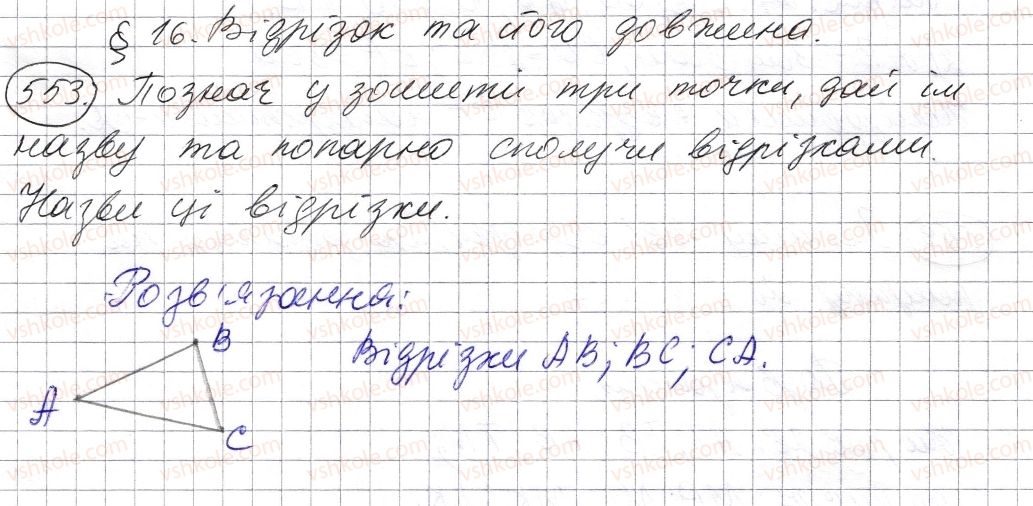 § 16. Відрізок та його довжина.
553. Познач у зошиті три точки, дай їм
назву та попарно сполучи відрізками.
Назви ці відрізки.
Розв'язання:
B
Відрізки AB; BC; CA.
A
C